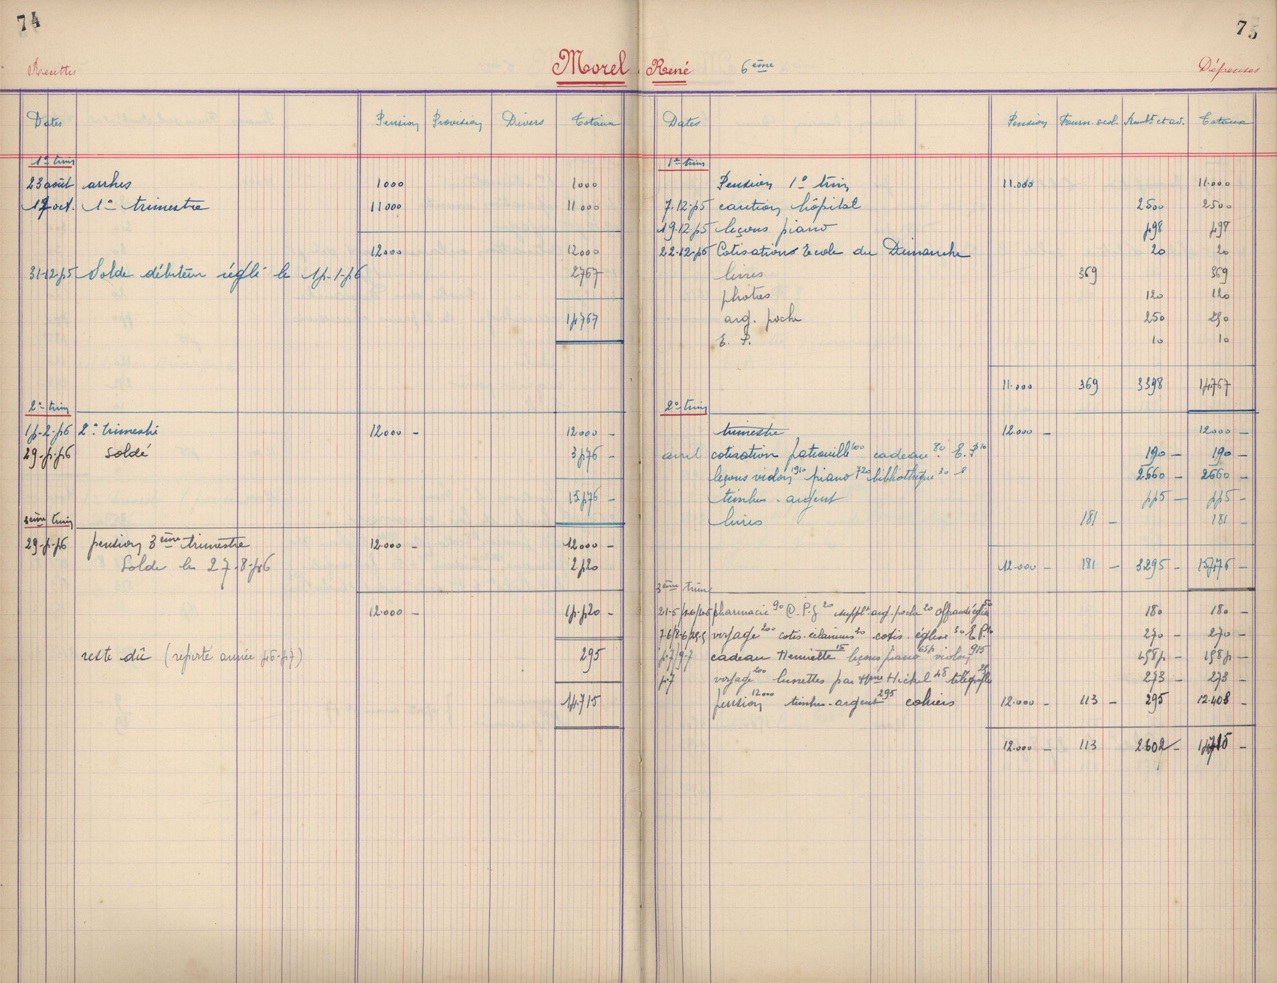 74
Recettes
Morel
Dates Pension Provision Divers Totaux
1er trim
23 août arrhes 1000 1000
17 oct. 1er trimestre 11000 11000
12000 12000
31-12-45 Solde débiteur réglé le 14-1-46 2767
14767
2e trim
14-2-46 2e trimestre 12000 - 12000 -
29-4-46 soldé 3476 -
15476 -
3ème trim
29-4-46 pension 3ème trimestre 12.000 - 12.000 -
Solde le 27-8-46 2420
12.000 - 14.420 -
reste dû (reporté année 46-47) 295
14.715
75
René 6ème
Dépenses
Dates Pension Fourn. scol. Totaux
1er trim
Pension 1er trim 11.000 11.000
7.12.45 caution hôpital 2500 2500
19.12.45 leçons piano 498 498
22-12-45 Cotisations Ecole du Dimanche 20 20
livres 369 369
photos 120 120
arg. poche 250 250
E. P. 10 10
11.000 369 3398 14767
2e trim
trimestre 12.000 - 12000 -
avril cotisation patrouille 100 cadeau 80 E.P. 10 190 - 190 -
leçons violon 1910 piano 720 bibliothèque 30 2660 - 2660 -
timbres - argent 445 - 445 -
livres 181 - 181 -
12.000 - 181 - 3295 - 15476 -
3ème trim
pharmacie 90 20 suppl. arg. poche 20 180 - 180 -
voyage 200 cotis. éclaireurs 30 cotis. église 30 E.P. 10 270 - 270 -
cadeau Henriette leçons piano violon 915 1584 - 1584 -
4-7 voyage 200 lunettes par Mme Hickel 48 273 - 273 -
pension 12000 timbres-argent 295 cahiers 12.000 - 113 - 295 12.408 -
12.000 - 113 2602 - 14715 -